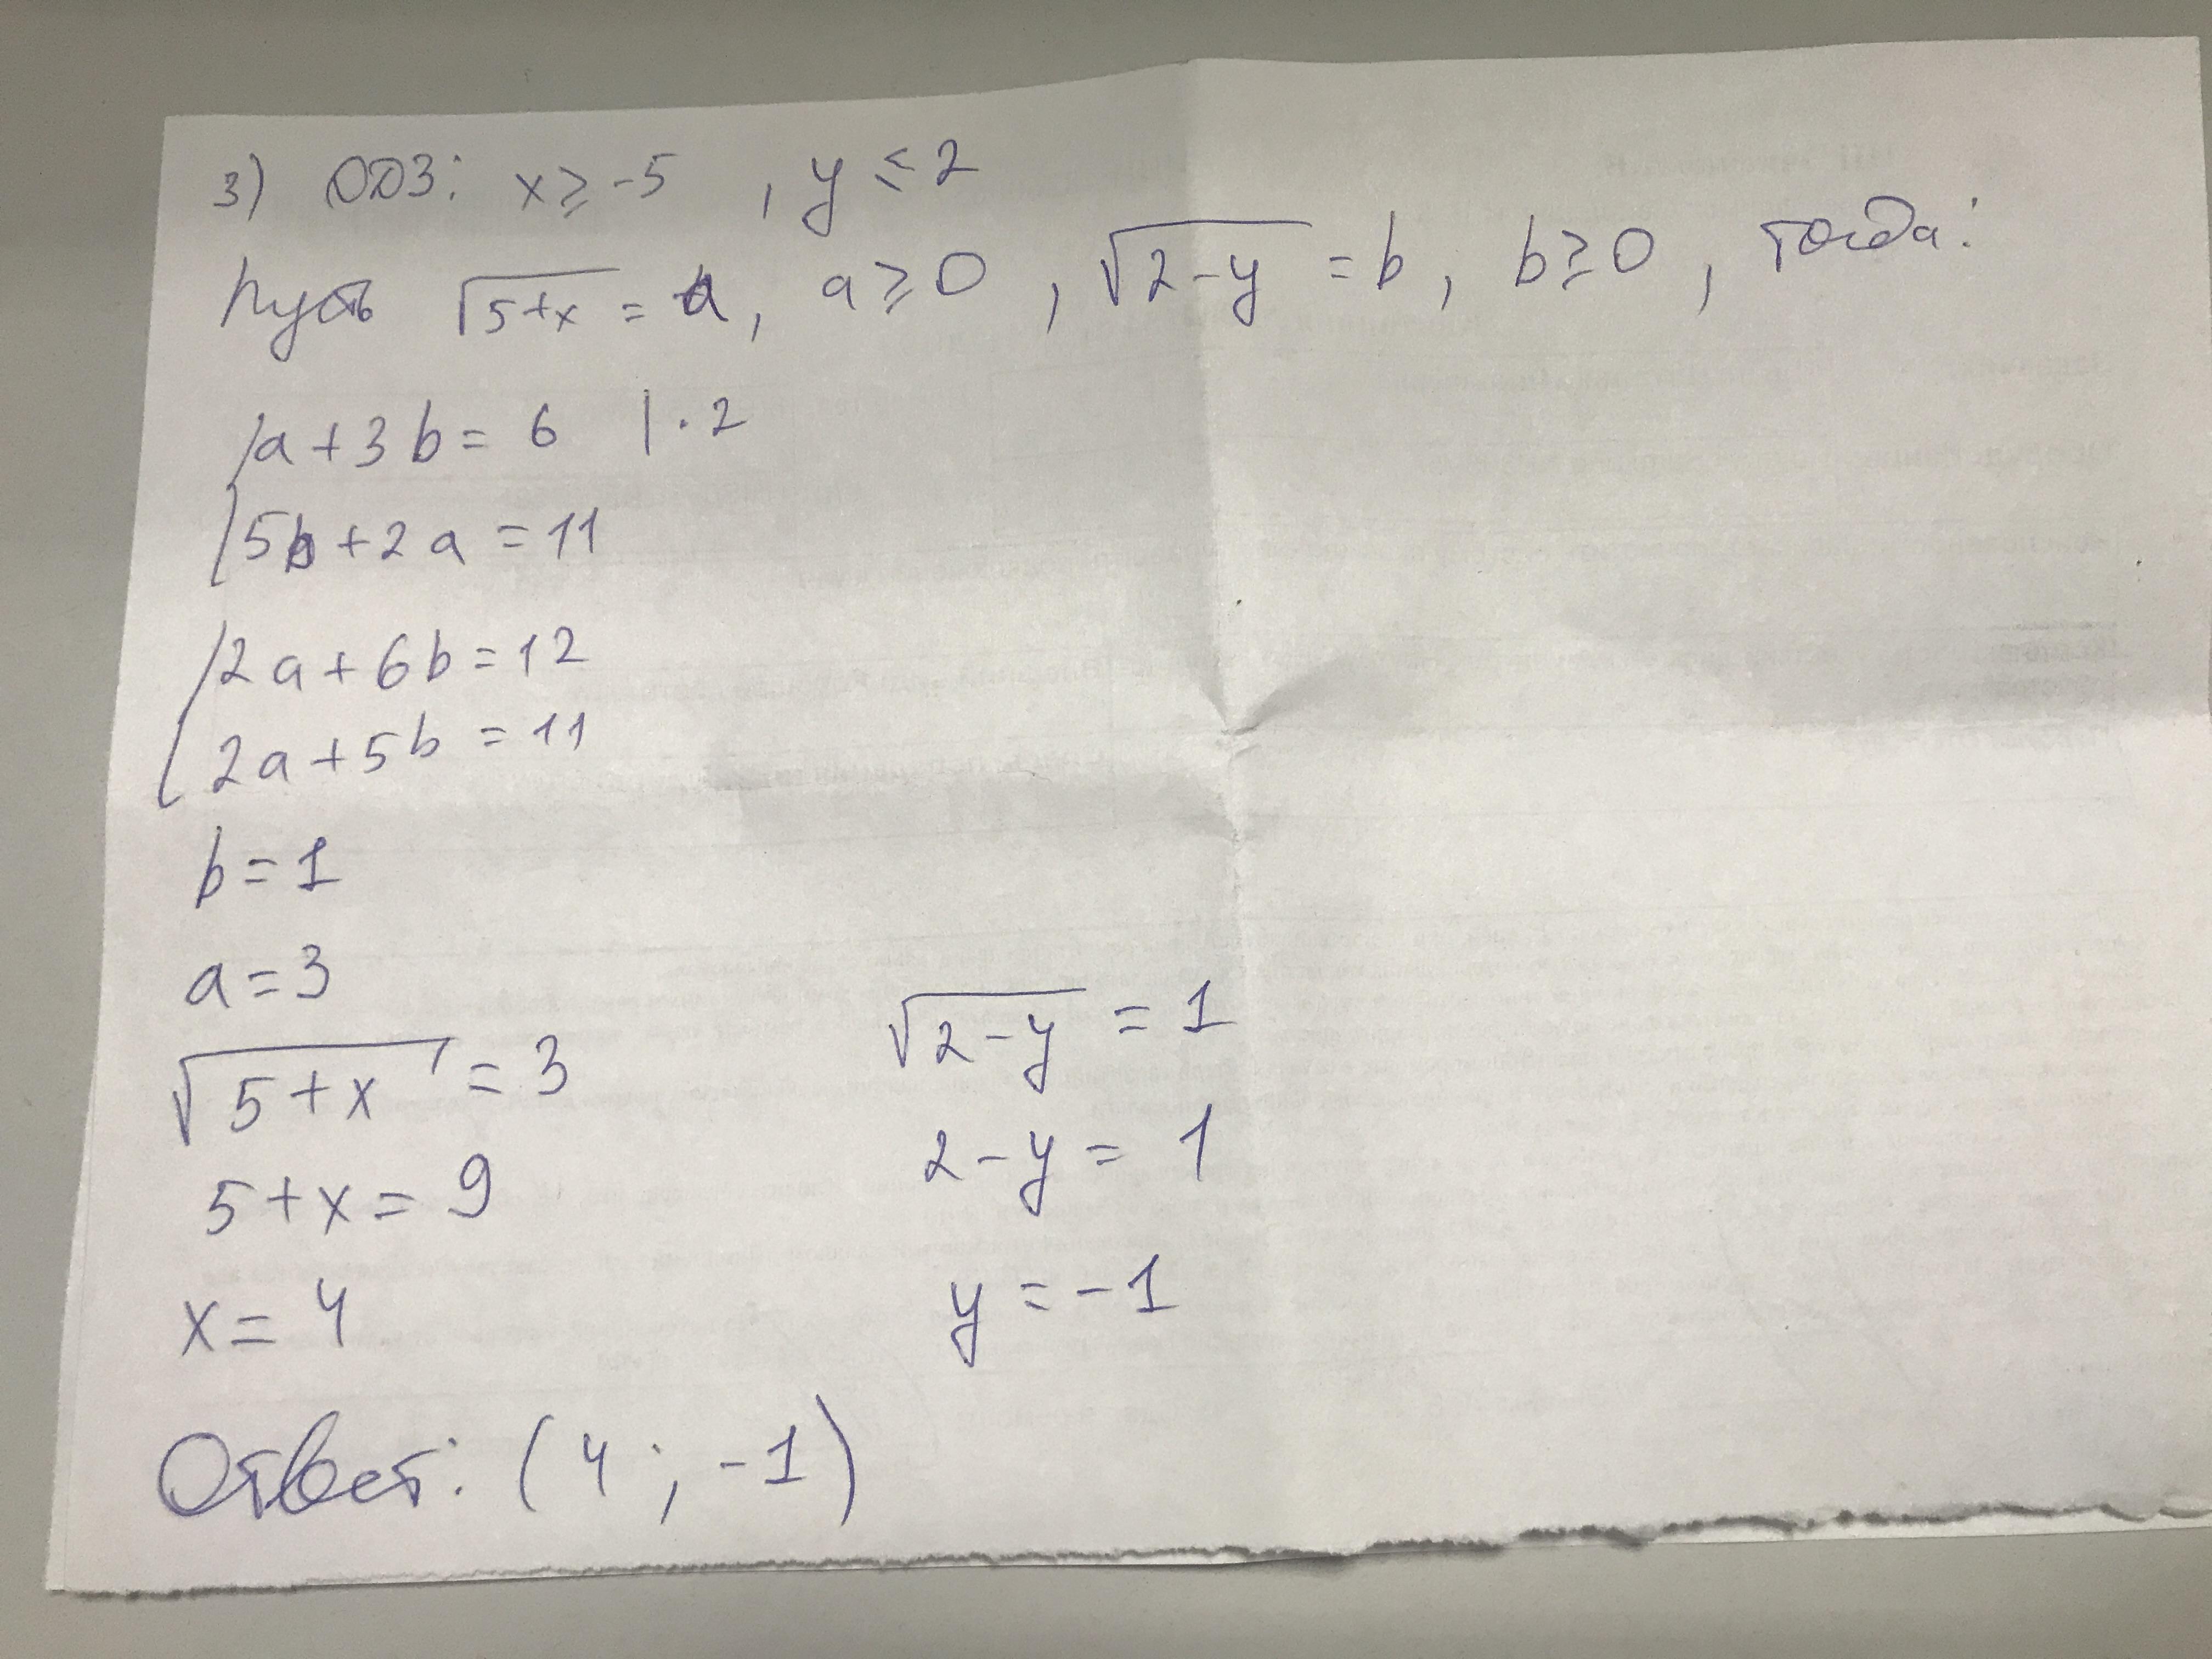 3) ОДЗ: x ≥ -5 , y ≤ 2
Пусть √(5+x) = a, a ≥ 0 , √(2-y) = b, b ≥ 0 , тогда:
{ a + 3b = 6 | · 2
{ 5b + 2a = 11
{ 2a + 6b = 12
{ 2a + 5b = 11
b = 1
a = 3
√(5+x) = 3
5 + x = 9
x = 4
√(2-y) = 1
2 - y = 1
y = -1
Ответ: (4 ; -1)